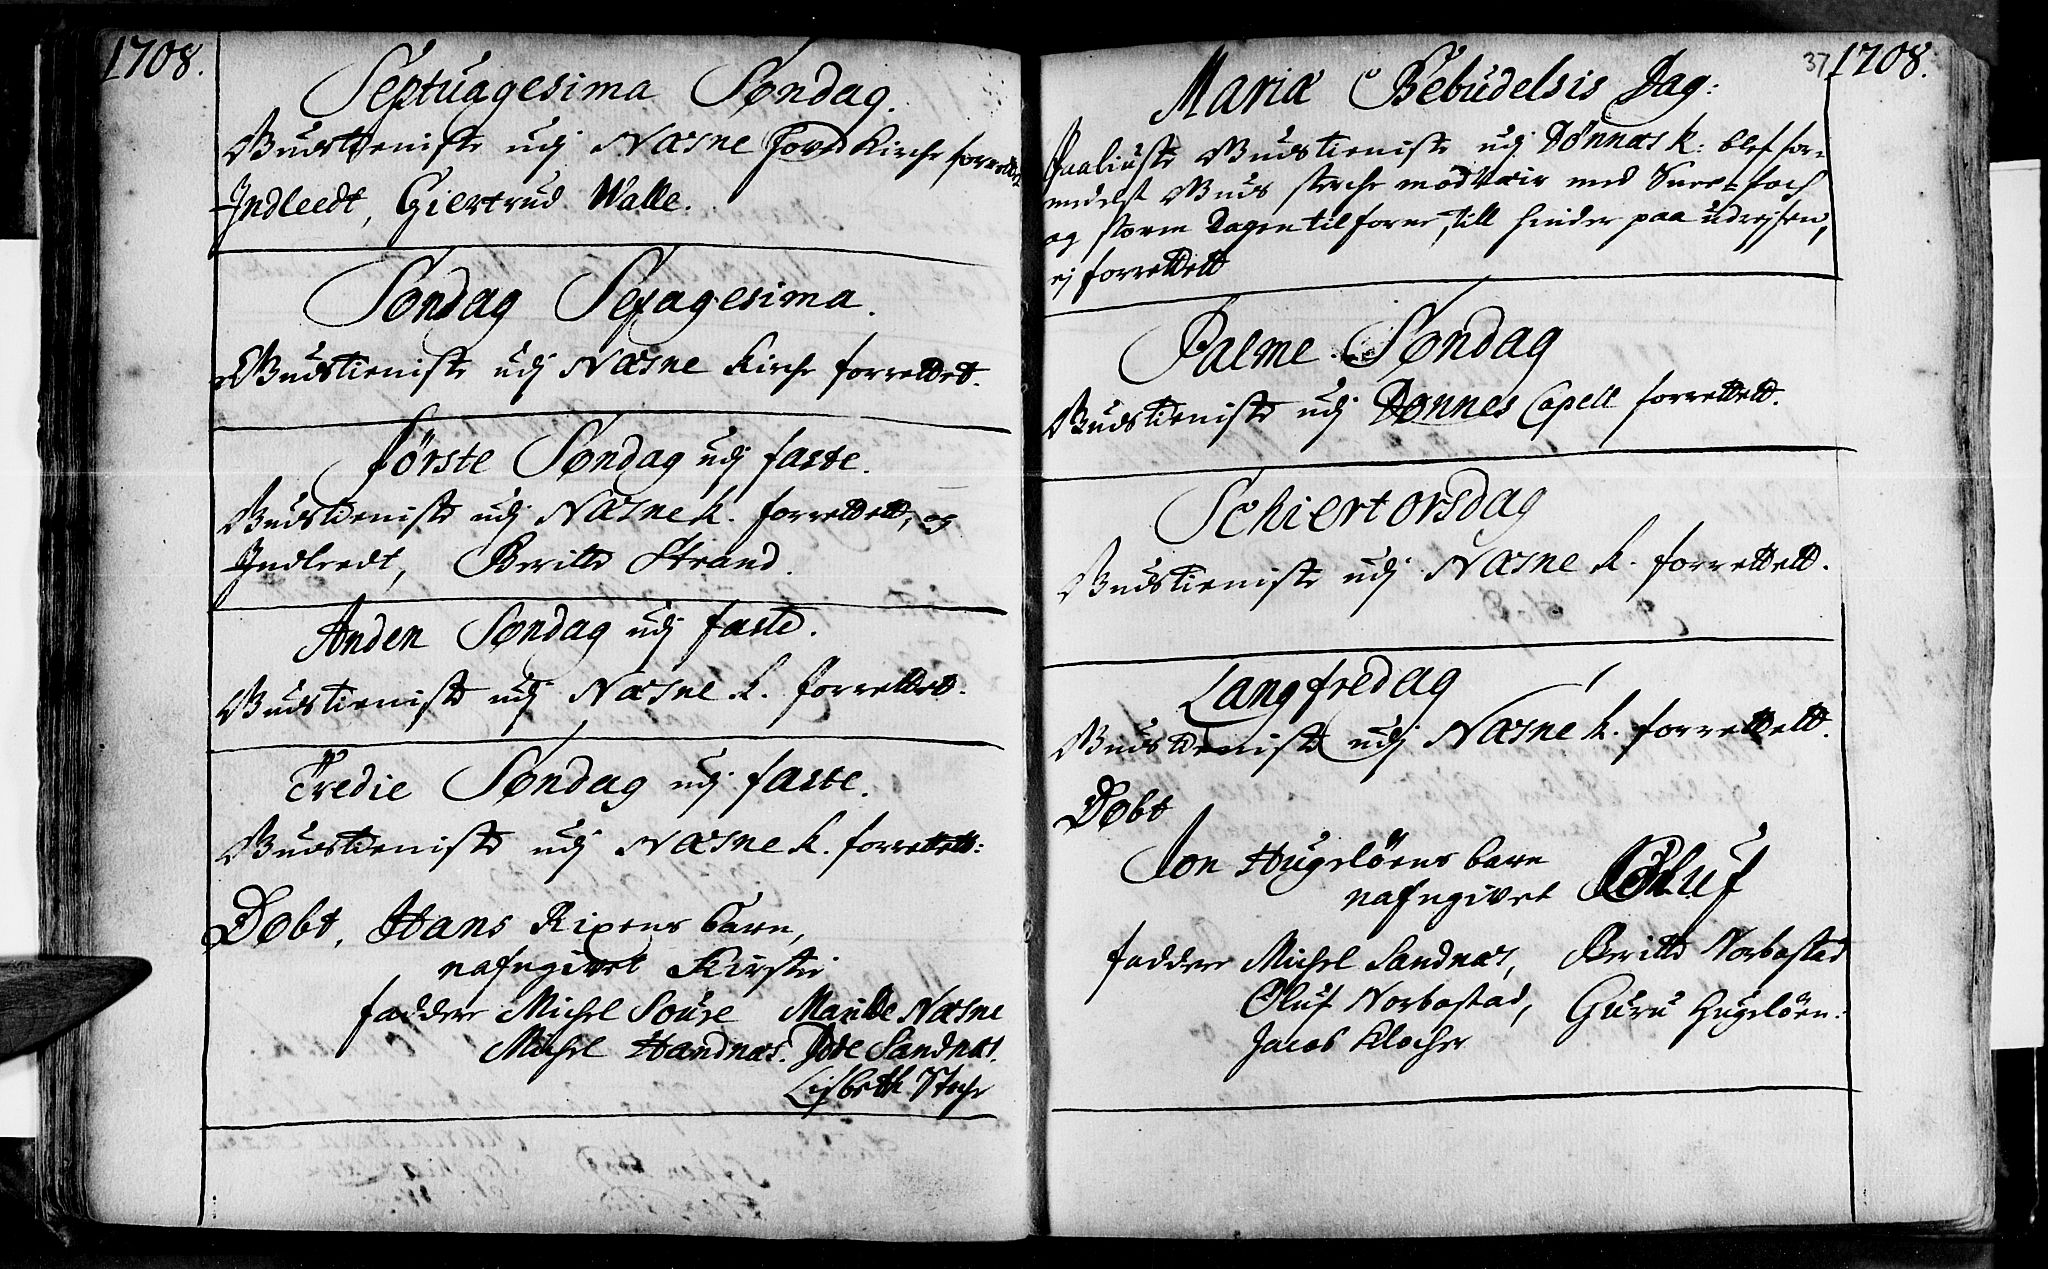 1708.
Septuagesima Søndag.
Gudstieniste udj Næsne Kirche forrettet
Indleedt, Giertrud Walle.
Søndag Sexagesima.
Gudstieniste udj Næsne Kirche forrettet.
Første Søndag udj faste.
Gudstieniste udj Næsne k. forrettett, og
Indleedt, Beritte Strand.
Anden Søndag udj faste.
Gudstieniste udj Næsne k. forrettet.
Tredie Søndag udj faste.
Gudstieniste udj Næsne k. forrettett:
Døbt, Hans Ripens barn,
nafngivet Kirsti
faddere Michel Soure Maritte Næsne
Michel Handnæs. Sandnæs.
Lisbeth
37 1708.
Mariæ Bebudelsis Dag:
Gudstieniste udj Dønnæs k: blef for-
medelst Guds sterche modvær med Snee-foch
og storm Dagen tilforne, till hinder paa udrejsen,
ej forrettett
Palme Søndag
Gudstieniste udj Dønnes Capell forrettett.
Schiertorsdag
Gudstieniste udj Næsne k. forrettett.
Langfredag
Gudstieniste udj Næsne k. forrettett.
Døbt
Jon Hugeløens barn
nafngivet Oluf
faddere Michel Sandnæs, Beritte Norbostad
Oluf Norbostad, Guru Hugeløen.
Jacob Klocher